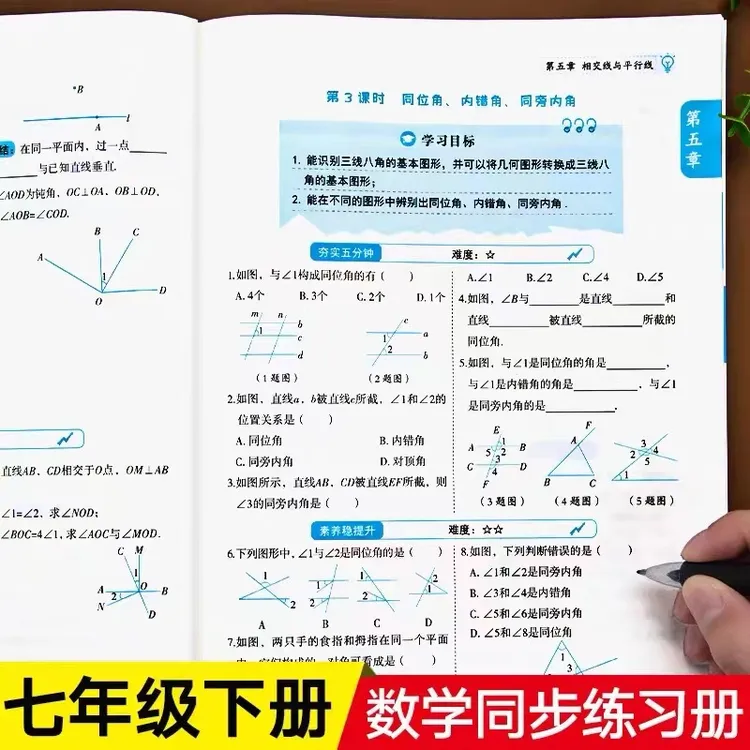 ·B
A
l
结：在同一平面内，过一点______
______与已知直线垂直.
∠AOD为钝角，OC⊥OA，OB⊥OD，
∠AOB=∠COD.
B
C
A
1
O
D
直线AB、CD相交于O点，OM⊥AB
∠1=∠2，求∠NOD；
∠BOC=4∠1，求∠AOC与∠MOD.
C
M
1
A
2
O
B
N
D
第五章 相交线与平行线
第五章
第3课时 同位角、内错角、同旁内角
学习目标
1. 能识别三线八角的基本图形，并可以将几何图形转换成三线八
角的基本图形；
2. 能在不同的图形中辨别出同位角、内错角、同旁内角.
夯实五分钟 难度：☆
1.如图，与∠1构成同位角的有（ ）
A. 4个 B. 3个 C. 2个 D. 1个
m
n
1
b
c
d
c
1
a
2
b
（1题图） （2题图）
2.如图，直线a，b被直线c所截，∠1和∠2的
位置关系是（ ）
A. 同位角 B. 内错角
C. 同旁内角 D. 对顶角
3.如图所示，直线AB，CD被直线EF所截，则
∠3的同旁内角是（ ）
A.∠1 B.∠2 C.∠4 D.∠5
4.如图，∠B与______是直线______和
直线______被直线______所截的
同位角.
5.如图，与∠1是同位角的角是______，
与∠1是内错角的角是______，与∠1
是同旁内角的是______.
E
A
5
1
2
B
C
3
4
D
F
A
F
B
C
3
2
4
5
1
（3题图） （4题图） （5题图）
素养稳提升 难度：☆☆
6.下列图形中，∠1与∠2是同位角的是（ ）
1
2
1
2
1
2
1
2
A B C D
7.如图，两只手的食指和拇指在同一个平面
8.如图，下列判断错误的是（ ）
A. ∠1和∠2是同旁内角
B. ∠3和∠4是内错角
C. ∠5和∠6是同旁内角
D. ∠5和∠8是同位角
1
3
七年级下册
数学同步练习册